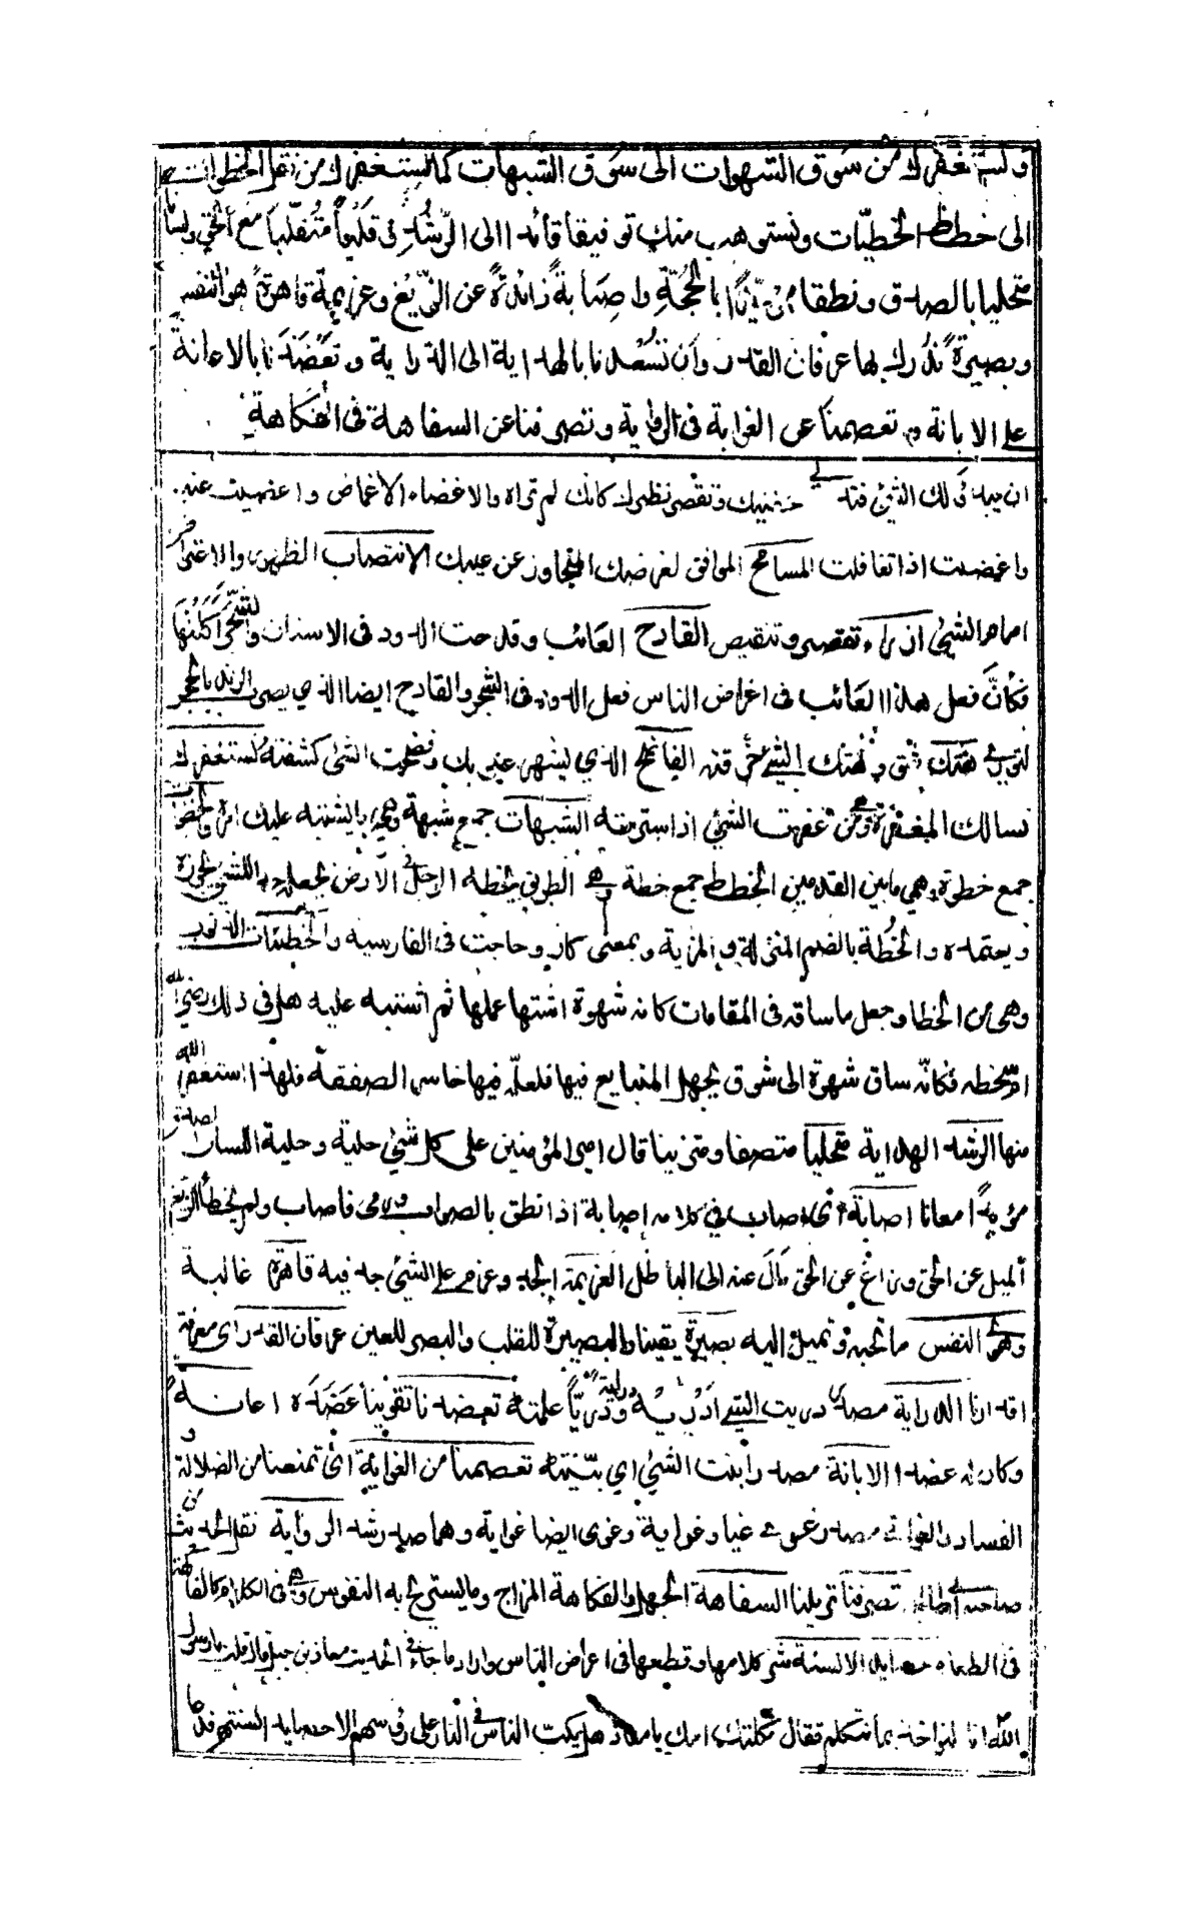 ونستغفرك من سوق الشهوات الى سوق الشبهات كما نستغفرك من نقل الخطوات
الى خطط الخطيّات ونستوهب منك توفيقا قائدا الى الرّشد وقلبًا متقلّبًا مع الحق ولسانا
متحليا بالصدق ونطقا مؤيّدًا بالحجّة واصابةً زائدةً عن الزّيغ وعزيمة قاهرةً هوى النفس
وبصيرةً ندرك بها عرفان القدر وأن تسعدنا بالهداية الى الدراية وتعضدنا بالاعانة
على الابانة وتعصمنا عن الغواية فى الرواية وتصرفنا عن السفاهة فى الفكاهة
ان يبدو لك الشئ فتدلى جفنيك وتقصر نظرك كانك لم تراه والاغضاء الاغماض واغضيت عنه
واغمضت اذا تغافلت المسامح الموافق لغرضك المتجاوز عن عيبك الانتصاب الظهور والاعتراض
امام الشئ ازراء تقصير وتنقيص القادح العائب وقدحت الدود فى الاسنان والشجر اكلتها
فكأنّ فعل هذا العائب فى اعراض الناس فعل الدود فى الشجر والقادح ايضا الذي يصى الزند بالحجر
هتك شق وهتك الشئ خرقه الفاضح الذي يشهر عيوبك وفضحت الشئ كشفته نستغفرك
نسالك المغفرة وهى من غفرت الشئ اذا سترته الشبهات جمع شبهة وهى ما يشتبه عليك امره والخطوات
جمع خطوة وهي ما بين القدمين الخطط جمع خطة وهي الطريق يخطه الرجل فى الارض يجعله حدا للشئ يحوزه
ويعتمده والخُطّة بالضم المنزلة والمزية وبمعنى كار وحاجت فى الفارسية والخطيئات الذنوب
وهى من الخطا وجعل ما ساقه فى المقامات كانه شهوة اشتهاعملها ثم اشتبه عليه هل فى ذلك رضى الله
او سخطه فكانّه ساق شهوة الى سوق يجهل المتبايع فيها فلعلّه فيها خاسر الصفقة فلهذا استغفر الله
منها الرشد الهداية متحليا متصفا ومتزينا قال امير المؤمنين على كل شئ حلية وحلية اللسان الصدق
مؤيدًا معانا اصابة أى اصاب فى كلامه اصابة اذا نطق بالصواب ورمى فاصاب ولم يخطأ الزيغ
الميل عن الحق وزاغ عن الحق مَالَ عنه الى الباطل العزيمة الجد وعزم على الشئ جد فيه قاهرة غالبة
وهوى النفس ما تحبه وتميل اليه بصيرة يقينا والبصيرة للقلب والبصر للعين عرفان القدر اى معرفة
اقدارنا الدراية مصدر دريت الشئ ادريه دراية ودريًا علمته تعضدنا تقوينا عَضَدَه اعانه
وكان له عضدا الابانة مصدر ابنت الشئ اي بيّنته تعصمنا من الغواية اى تمنعنا من الضلالة و
الفساد والغوايه مصدر غوى غيا وغواية وغوى ايضا غواية وهما ضد رشد الرواية نقل الحديث من
صاحبه تصرفنا تزيلنا السفاهة الجهل والفكاهة المزاج وما يستريح به النفوس وهى فى الكلام كالفاكهة
فى الطعام حصايد الالسنة شر كلامها وقطعها فى اعراض الناس واراد ما جاء فى الحديث معاذ بن جبل قال قلت يا رسول
الله انا لنؤاخذ بما نتكلم فقال ثكلتك امك يا معاذ هل يكب الناس فى النار على رؤسهم الا حصايد السنتهم